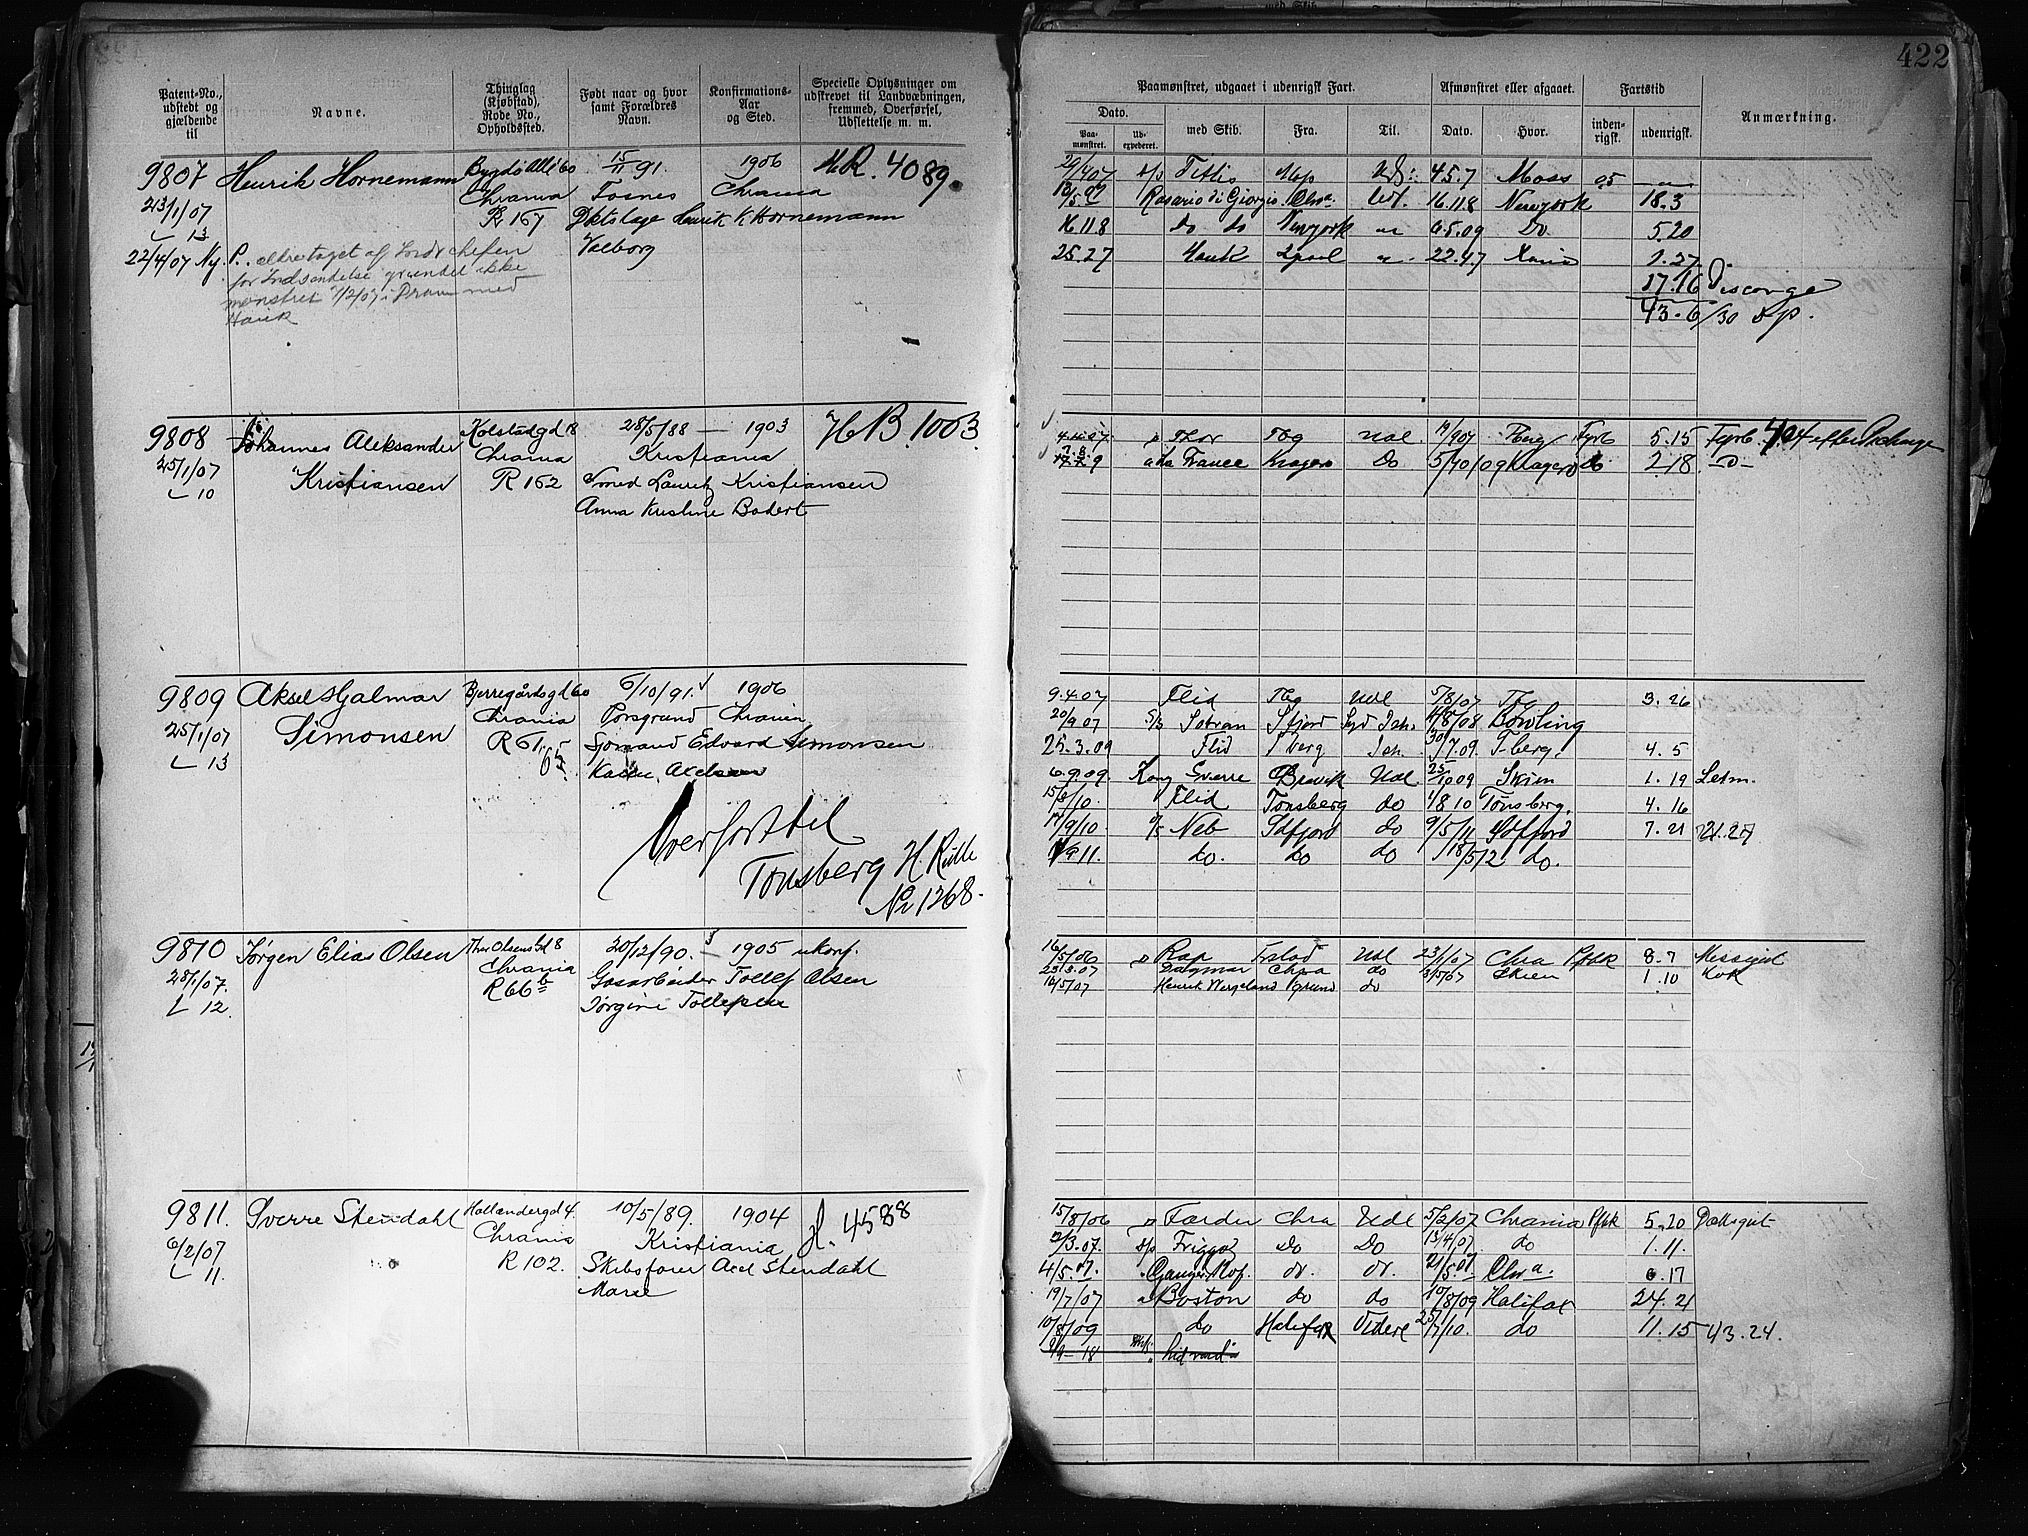 422
Patent-No., udstedt og gjældende til
Navne.
Thinglag (Kjøbstad), Rode No., Opholdssted.
Født naar og hvor samt Forældres Navn.
Konfirmations-Aar og Sted.
Specielle Oplysninger om udskrevet til Landværbningen, fremmed, Overførsel, Udslettelse m. m.
Paamønstret, udgaaet i udenrigsk Fart.
Afmønstret eller afgaaet.
Fartstid
Anmærkning.
Dato.
Paa-mønstret.
Ud-expederet.
med Skib.
Fra.
Til.
Dato.
Hvor.
inden-rigsk.
udenrigsk.
9807 Henrik Hornemann Bygdö Allé 60 15/11 91. 1906 HR. 4089.
23/1/07 Chrania Fosnes Chrania
L 13 R 167 Dktslæge Henrik K Hornemann
22/4/07 Ny P. Valborg
for Indsendelse grundet ikke
mønstret 7/2/07 i Dram med
Hauk
29/4 07 D/p Tiflis 4.5.7 Moss 05
Rosario di Giorgio Chra. Udl. 16.11.8 Newyork 18.3
16.11.8 do do Newyork 6.5.09 Do 5.20
25.27 Hauk 22.4.7 1.27.
17.16 Discarge
43.6/30 D/p.
9808 Johannes Aleksander Kolstadgd 18 28/5/88 — 1903 HB. 1003
25/1/07 Kristiansen Chrania Kristiania
L 10 R 162 Smed Lauritz Kristiansen
Anna Kristine Bodert
Thor Tbg Udl 19/907 Tbg Fyrb 5.15 Fyrb. 404 efter Discharge
France Kragerø Do 5/10/09 Kragerø do 2.18 —D—
9809 Aksel Hjalmar Bjerregårdsgd 60 6/10/91. 1906
25/1/07 Simonsen Chrania Porsgrund Chrania
L 13 R 61. 65. Sjømand Edvard Simonsen
Karen Axelsen
Overført til
Tønsberg H. Rulle
Nr 1268.
9.4.07 Flid Tbg Udl 5/8/07 Tbg 3.26
20/9.07 S/s Sobran Sfjord Syd Ish. 11/8/08 Bowling
25.3.09 Flid Tberg Ish. 30/7.09. T-berg. 4.5
6.9.09. Kong Sverre Brevik Udl 25/10 09 Skien 1.19 Letm.
15/3/10. Flid Tønsberg do 1/8 10 Tønsberg. 4.16
17/9/10. Neb Sdfjord do 9/5/11 Sdfjord 7.21 21.27
9 11. do. do do 18/5/2 do.
9810 Jørgen Elias Olsen Thor Olsens gd 8 20/12/90. — 1905 ukonf.
28/1/07. Chrania Gasarbeider Tollef Olsen
L 12. R 66 b Jørgine Tollefsen
16/5/06 D Rap Frstad Udl 23/1/07 Chra Pfbk 8.7 Messgut
23.3.07 Dagmar Chra do 3/5/07 Skien 1.10 Kok
12/5/07 Henrik Wergeland Pgrund do
9811. Sverre Stendahl Hollendergd 4. 10/5/89. 1904 H. 4588
6/2/07 Chrania Kristiania
L 11. R 102. Skibsfører Axel Stendahl
Marie
15/8/06 D Færder Chra Udl 5/2/07 Chrania Pfbk 5.20 Dæksgut
2/3.07. D/p Frigga Do Do 13/4/07 do 1.11.
4/5.07. Ganger Rolf. do. do. 21/5.07 Chra. 0.17
19/7/07 Boston do do 10/8/09 Halifax 24.21
10/8/09 do Halifax Videre 25/7/10. do 11.15 43.24.
9/9-18